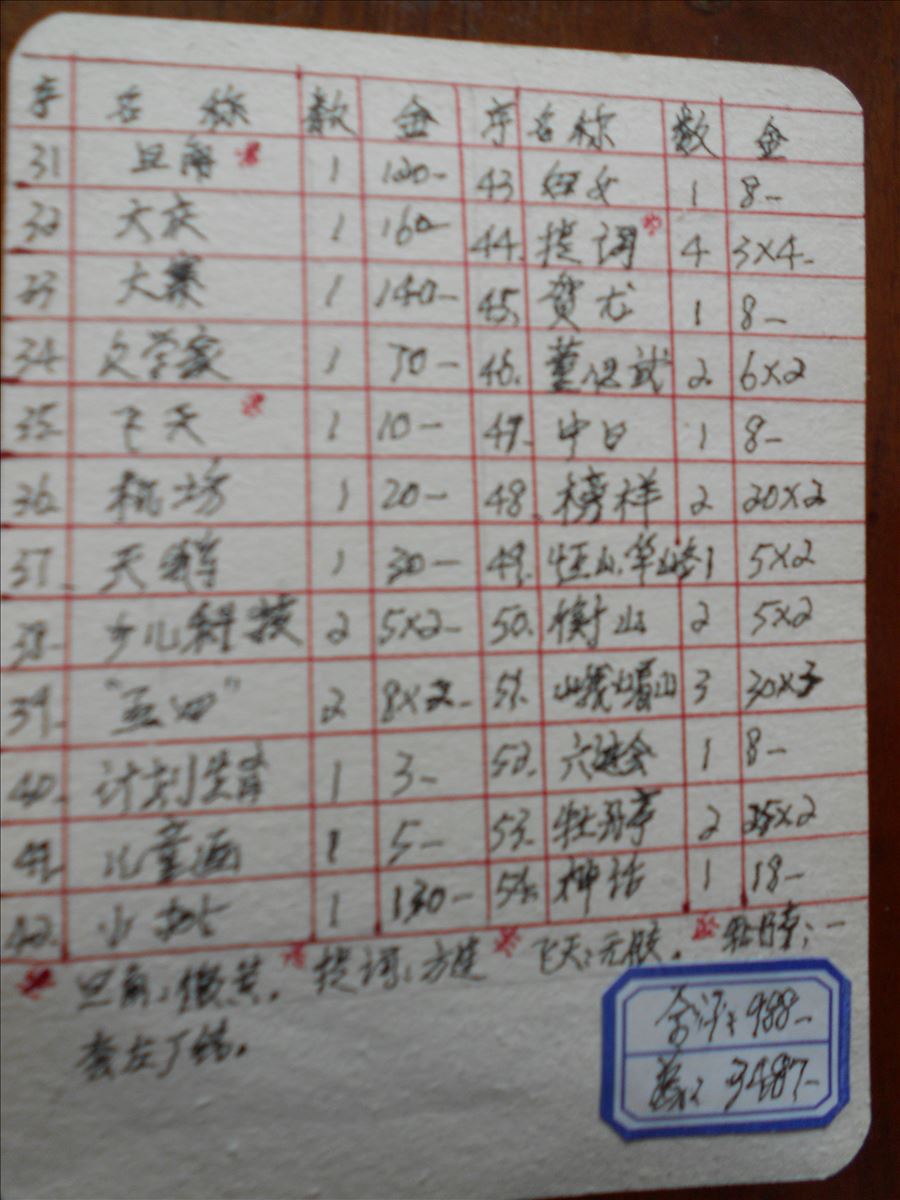 序 名称 数 金 序 名称 数 金
31 旦角 1 120- 43 妇女 1 8-
32 大庆 1 160- 44. 提词 4 3×4-
33 大寨 1 140- 45. 贺龙 1 8-
34 文学家 1 70- 46. 董必武 2 6×2
35 飞天 1 10- 47. 中日 1 8-
36. 机场 1 20- 48. 榜样 2 20×2
37. 天鹅 1 30- 49. 恒山.华山各1 5×2
38. 少儿科技 2 5×2- 50. 衡山 2 5×2
39. "五四" 2 8×2- 51. 峨嵋山 3 30×3
40. 计划生育 1 3- 52. 六运会 1 8-
41. 儿童画 1 5- 53. 牡丹亭 2 25×2
42. 小 1 130- 54. 神话 1 18-
旦角:微黄. 提词:方连 飞天:无胶. 牡丹亭:一
套左丁
合计: 988-
3487-